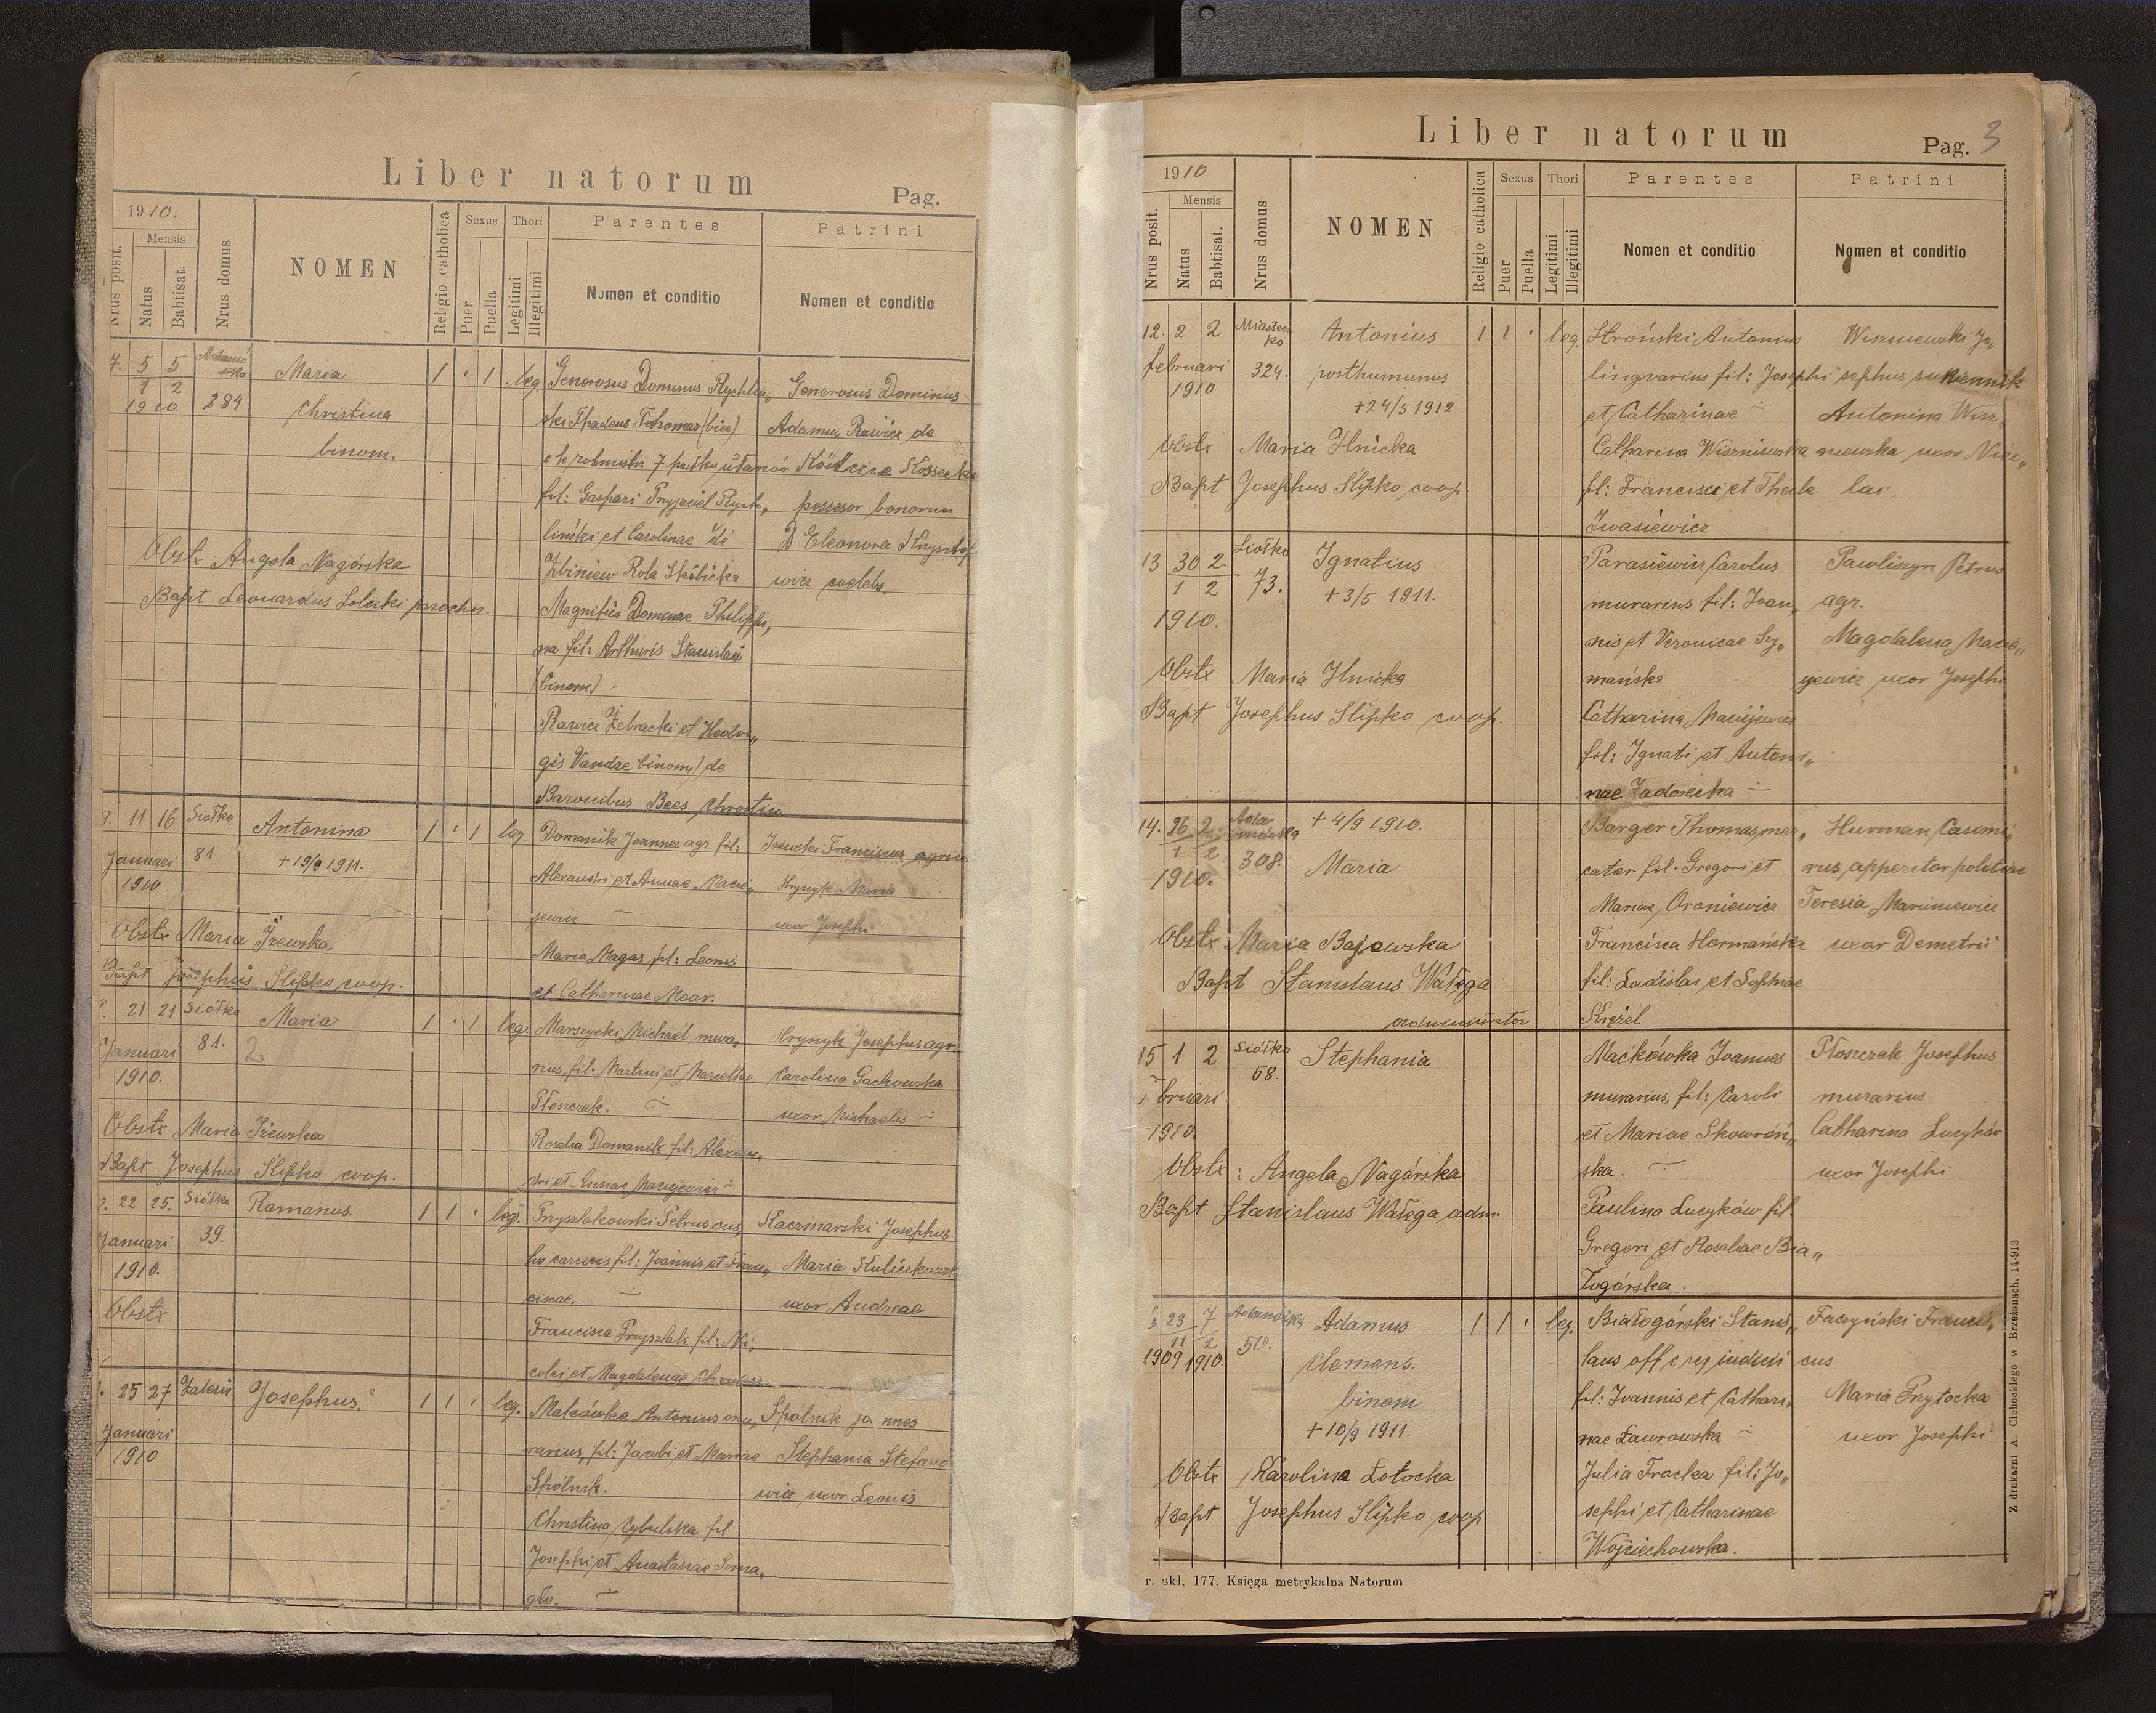 Liber natorum
Pag.
1910.
Mensis
Nrus posit.
Natus
Babtisat.
Nrus domus
NOMEN
Religio catholica
Sexus
Puer
Puella
Thori
Legitimi
Illegitimi
Parentes
Nomen et conditio
Patrini
Nomen et conditio
7. 5 5 Maria 1 · 1 leg. Generosus Dominus Generosus Dominus
1 2
1910. 284. Christina Adamus Rawicz de
binom.
fil: Gaspari possessor bonorum
liński et Carolinae de Eleonora
Obstx Angela Nagórska Zbiniew Rola wicz coelebs.
Bapt Leonardus parochus. Magnifica Dominae Philippi,
na fil: Arthuris Stanislai
(binom) -
Rawicz Żebracki et Hedvi„
gis Vandae binom) de
Baronibus Bees
11 16 Siółko Antonina 1 · 1 leg Domanik Joannes agr. fil: Izewski Franciscus
Januari 81 + 19/9 1911. Alexandri et Annae Macie„ Hrynyk Maria
1910 jewicz uxor Josephi
Obstx Maria Iżewska. Maria Magas fil: Leonis
Bapt Josephus Slipko coop. et Catharinae
21 21 Siółko Maria 1 · 1 leg. Marszycki Michael mura„ Hrynyk Josephus agr.
Januari 81. 2 rius, fil: Martini et Marcellae Carolina Gachowska
1910. Płoszczak. uxor Michaelis
Obstx Maria Iżewska Rosalia Domanik fil: Alexan„
Bapt Josephus Slipko coop. dri et Annae Maciejewicz
22 25. Siółko Romanus. 1 1 · leg. Przyszlakowski Petrus Kaczmarski Josephus
Januari 39. fil: Joannis et Fran„ Maria
1910. ciscae. uxor Andreae
Obstx Francisca Przyszlak fil: Ni„
colai et Magdalenae
25 27 Zalesie Josephus. 1 1 · leg. Antonius Spólnik
Januari rarius, fil: Jacobi et Mariae Stephania Stefano
1910 Spólnik. wicz uxor Leonis
Christina Cybulska fil
Josephi et Anastasiae
gło.
Liber natorum
Pag. 3
1910
Mensis
Nrus posit.
Natus
Babtisat.
Nrus domus
NOMEN
Religio catholica
Sexus
Puer
Puella
Thori
Legitimi
Illegitimi
Parentes
Nomen et conditio
Patrini
Nomen et conditio
12. 2 2 Miastecz Antonius 1 1 · leg. Stroński Antonius Wiszniewski Jo„
ko
februari 324. posthumunus lingvarius fil: Josephi sephus sukiennik
1910 +24/5 1912 et Catharinae Antonina Wisz„
Obstx Maria Ilnicka Catharina Wiszniewska niewska uxor Nico„
Bapt Josephus Slipko coop fil: Francisci et Thecle lai.
Iwasiewicz
13 30 2 Siółko Ignatius Parasiewicz Carolus Pawliszyn Petrus
1 2 73. + 3/5 1911. murarius fil: Joan„ agr.
1910. nis et Veronicae Szy„ Magdalena Macie„
Obstx Maria Ilnicka mańska jewicz uxor Josephi
Bapt Josephus Slipko coop. Catharina Maciejewicz
fil: Ignati et Antoni„
nae
14. 26 2 + 4/9 1910. Barger Thomas mer„ Hurman Casimi„
1 2 308. Maria cator fil. Gregori et rus, apperitor politiae
1910. Mariae Aroniewicz Teresia
Obstx Maria Bajowska Francisca Hormańska uxor Demetrii
Bapt Stanislaus Wałęga fil: Ladislai et Sophiae
administrator
15 1 2 Siółko Stephania Maćkówka Joannes Płoszczak Josephus
68.
bruari murarius, fil: Caroli murarius
1910. et Mariae Skowroń„ Catharina Łucyków
Obstx: Angela Nagórska ska. uxor Josephi
Bapt Stanislaus Wałęga adm. Paulina Łucyków fil.
Gregori et Rosaliae Bia„
łogórska.
23 7 Adamówka Adamus 1 1 · leg. Białogórski Stanis„ Faczyński Francis„
11 2 50.
1909 1910. Clemens. laus off c reg judicii cus
binom fil: Joannis et Cathari„ Maria Przytocka
+ 10/9 1911. nae Ławrowska uxor Josephi
Obstx Karolina Łotocka Julia Tracka fil: Jo„
Bapt Josephus Slipko coop sephi et Catharinae
Wojciechowska.
r. skł. 177. Księga metrykalna Natorum
Z drukarni A. Cichockiego w Brzeżanach. 14913